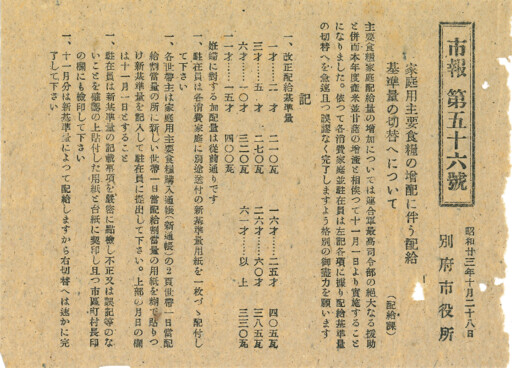 市報 第五十六號
昭和廿三年十月二十八日
別府市役所
家庭用主要食糧の増配に伴う配給
基準量の切替へについて
(配給課)
主要食糧家庭配給量の増加については連合軍最高司令部の絶大なる援助
と併而本年度産米並甘藷の増産と相俟つて十一月一日より実施すること
になりました。依つて各消費家庭並駐在員は左記各項に據り配給基準量
の切替へを急速且つ誤謬なく完了しますよう格別の御盡力を願います
記
一、改正配給基準量
一才……二才 二一〇瓦 一六才……二五才 四〇五瓦
三才……五才 二七〇瓦 二六才……六〇才 三八五瓦
六才……一〇才 三二〇瓦 六一才……以上 三三〇瓦
一一才……一五才 四〇〇瓦
妊婦に對する加配量は從前通りです
一、駐在員は各消費家庭に別途送付の新基準量用紙を一枚づゝ配付し
て下さい
一、各世帯主は家庭用主要食糧購入通帳(新通帳)の2頁世帯一日當配
給割當量の所に新しい世帯一日當配給割當量の用紙を糊で貼りつ
け新基準量を記入して駐在員に提出して下さい。上部の月日の欄
は十一月一日とすること
一、駐在員は新基準量の記載事項を嚴密に點檢し不正又は誤記等のな
いことを確認の上貼付した用紙と台紙に契印し且つ市區町村長印
の欄にも檢印して下さい
一、十一月分は新基準量によつて配給しますから右切替へは速かに完
了して下さい